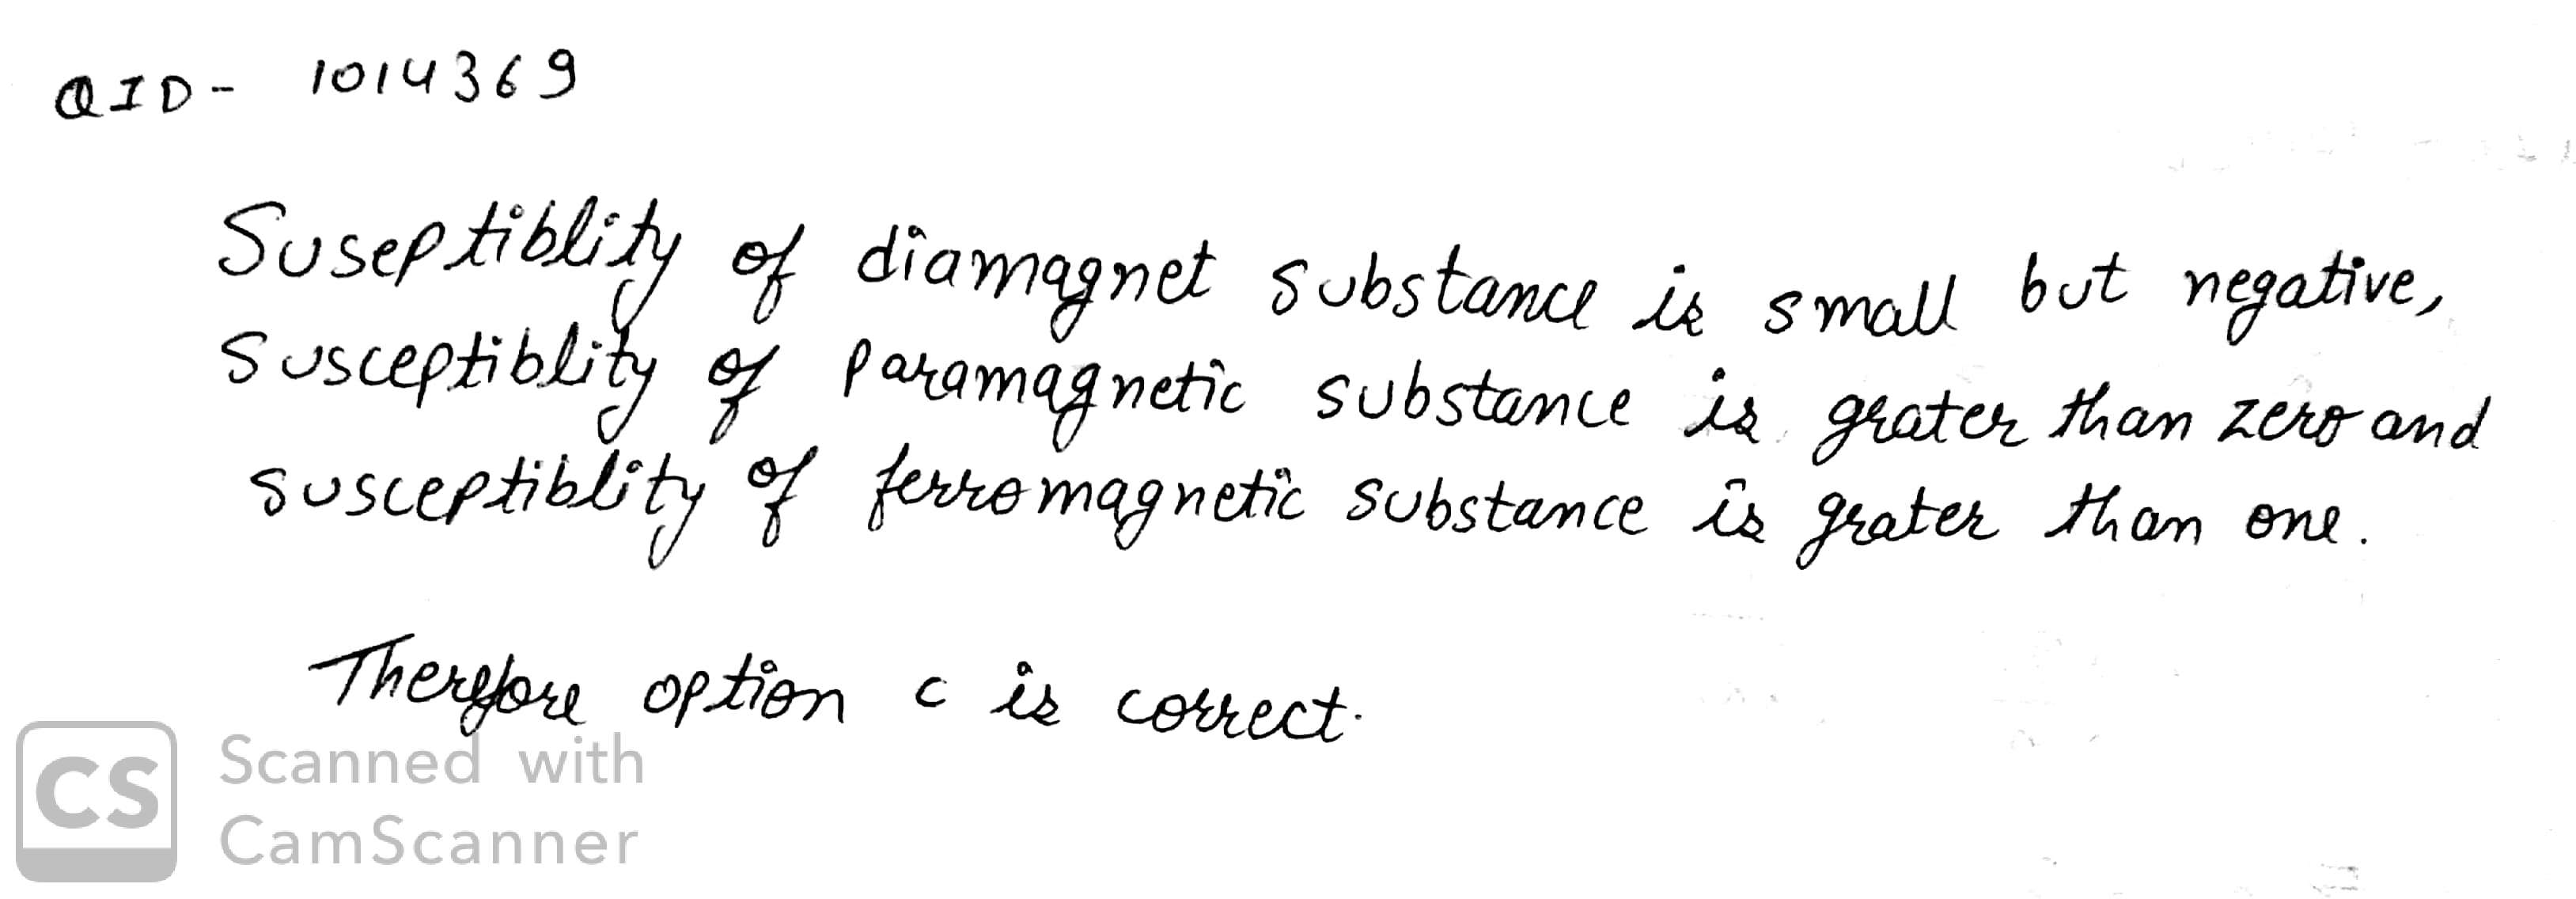 QID- 1014369
Suseptiblity of diamagnet substance is small but negative,
Susceptiblity of Paramagnetic substance is grater than zero and
susceptiblity of ferromagnetic substance is grater than one.
Therefore option c is correct.
CS Scanned with
CamScanner